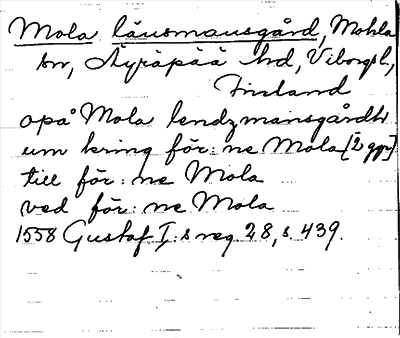 Mola länsmansgård, Mohla
sn, Äyräpää hd, Viborgsl.,
Finland
opå Mola lendzmansgårdh
um kring för: ne Mola [2 ggr]
till för: ne Mola
ved för: ne Mola
1558 Gustaf I:s reg 28, s. 439.